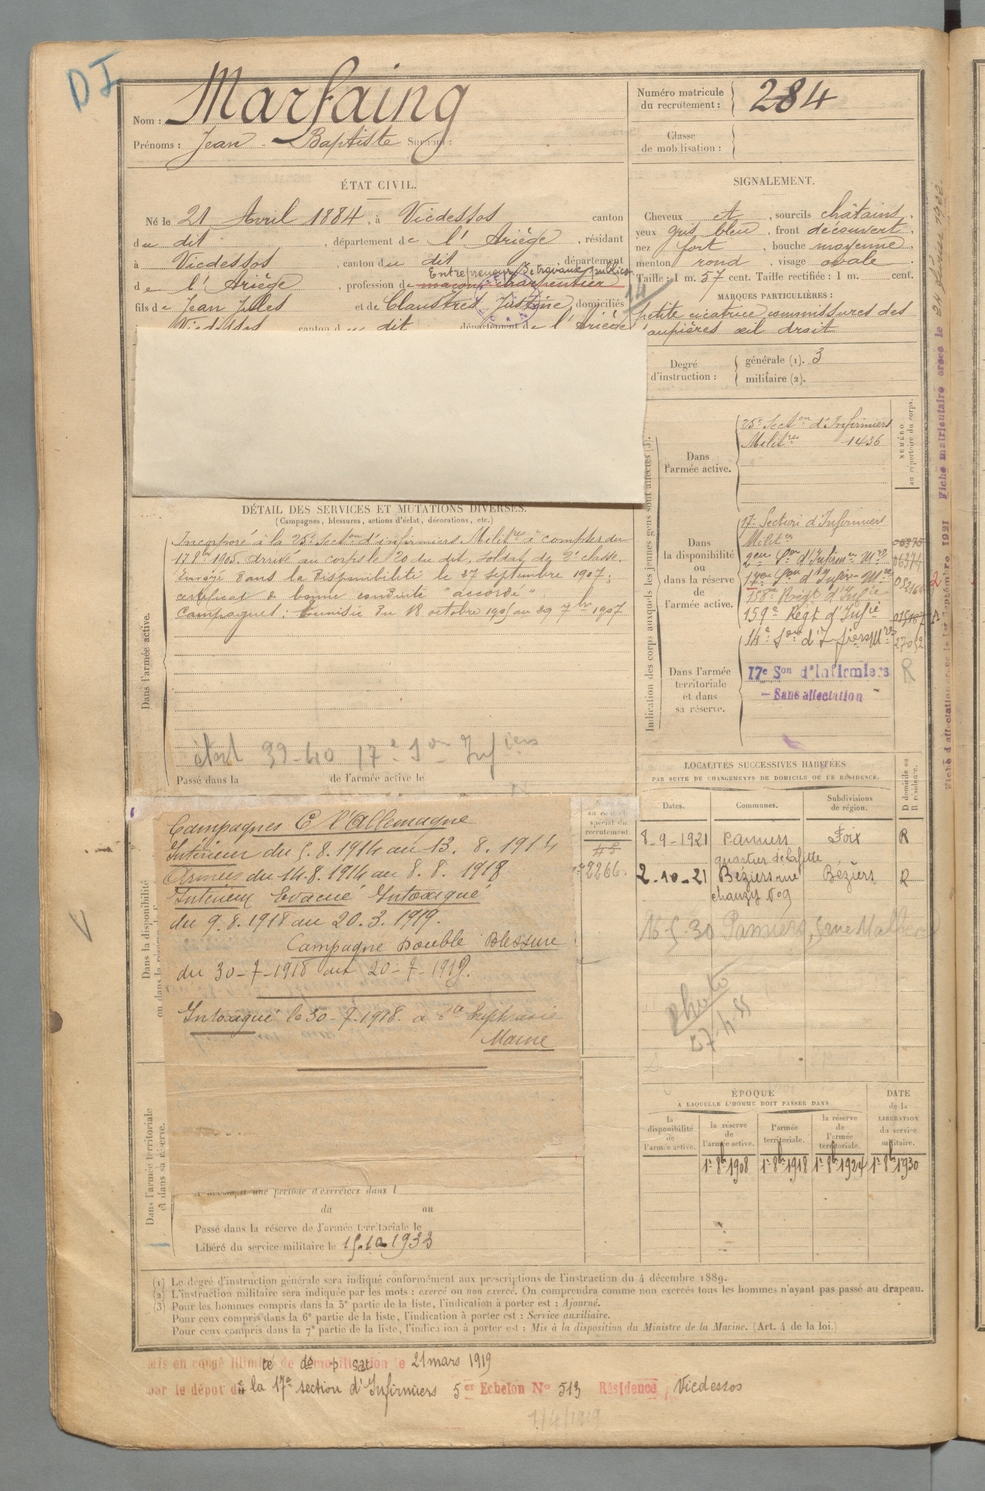 DI
Nom : Marfaing
Prénoms : Jean - Baptiste Surnom :
Numéro matricule du recrutement : 284
Classe de mobilisation :
ÉTAT CIVIL.
Né le 21 Avril 1884, à Vicdessos canton
du dit, département de l'Ariège, résidant
à Vicdessos, canton du dit département
Entrepreneur de travaux publics
de l'Ariège, profession de maçon charpentier
fils de Jean Jules et de Claustres Justine, domiciliés
Vicdessos canton du dit département de l'Ariège
SIGNALEMENT.
Cheveux et, sourcils châtains,
yeux gris bleu, front découvert,
nez fort, bouche moyenne
menton rond, visage ovale
Taille : 1 m. 57 cent. Taille rectifiée : 1 m. cent.
MARQUES PARTICULIÈRES :
petite cicatrice commissures des
paupières œil droit
Degré d'instruction : générale (1). 3
militaire (2).
DÉTAIL DES SERVICES ET MUTATIONS DIVERSES.
(Campagnes, blessures, actions d'éclat, décorations, etc.)
Dans l'armée active.
Incorporé à la 25e Section d'infirmiers Militres à compter du
17 8bre 1905. Arrivé au corps le 20 du dit, soldat de 2e classe.
Envoyé dans la disponibilité le 27 Septembre 1907 ;
certificat de bonne conduite "accordé"
Campagnes : Tunisie du 18 octobre 1905 au 29 7bre 1907
39-40 17e Son Infiers
Passé dans la de l'armée active le
Indication des corps auxquels les jeunes gens sont affectés (3).
NUMÉRO au répertoire du corps.
Dans l'armée active.
25e Secton d'Infirmiers
Militres 1436
Dans la disponibilité ou dans la réserve de l'armée active.
17e Section d'Infirmiers
Militres
158e Régt d'Infie
159e Régt d'Infie
Dans l'armée territoriale et dans sa réserve.
17e Son d'Infirmiers R
— Sans affectation
Dans la disponibilité ou dans la réserve
Campagnes C l'Allemagne
Intérieur du 5.8.1914 au 13.8.1914
Armées du 14.8.1914 au 8.8.1918
Intérieur Evacué Intoxiqué
du 9.8.1918 au 20.3.1919.
Campagne Double Blessure
du 30-7-1918 au 20-7-1919.
Intoxiqué le 30-7-1918. à Ste Euphraise
Marne
spécial du recrutement.
2266
LOCALITÉS SUCCESSIVES HABITÉES
PAR SUITE DE CHANGEMENTS DE DOMICILE OU DE RÉSIDENCE.
D domicile ou R résidence.
Dates. Communes. Subdivisions de région.
8-9-1921 Pamiers Foix R
quartier de Lafitte
2-10-21 Béziers rue Béziers R
chanzy No 9
16-5-30 Pamiers, 5 rue
Photo
27/4/55
ÉPOQUE
A LAQUELLE L'HOMME DOIT PASSER DANS
DATE de la LIBÉRATION du service militaire.
la disponibilité de l'armée active.
la réserve de l'armée active.
l'armée territoriale.
la réserve de l'armée territoriale.
1er 8bre 1908 1er 8bre 1918 1er 8bre 1924 1er 8bre 1930
Dans l'armée territoriale et dans sa réserve.
A accompli une période d'exercices dans l
du au
Passé dans la réserve de l'armée territoriale le
Libéré du service militaire le 15.10 1933
(1) Le degré d'instruction générale sera indiqué conformément aux prescriptions de l'instruction du 4 décembre 1889.
(2) L'instruction militaire sera indiquée par les mots : exercé ou non exercé. On comprendra comme non exercés tous les hommes n'ayant pas passé au drapeau.
(3) Pour les hommes compris dans la 5e partie de la liste, l'indication à porter est : Ajourné.
Pour ceux compris dans la 6e partie de la liste, l'indication à porter est : Service auxiliaire.
Pour ceux compris dans la 7e partie de la liste, l'indication à porter est : Mis à la disposition du Ministre de la Marine. (Art. 4 de la loi.)
Mis en congé illimité de démobilisation le 21 mars 1919
par le dépôt de la 17e section d'Infirmiers 5er Echelon No 513 Résidence Vicdessos
1/4/1919